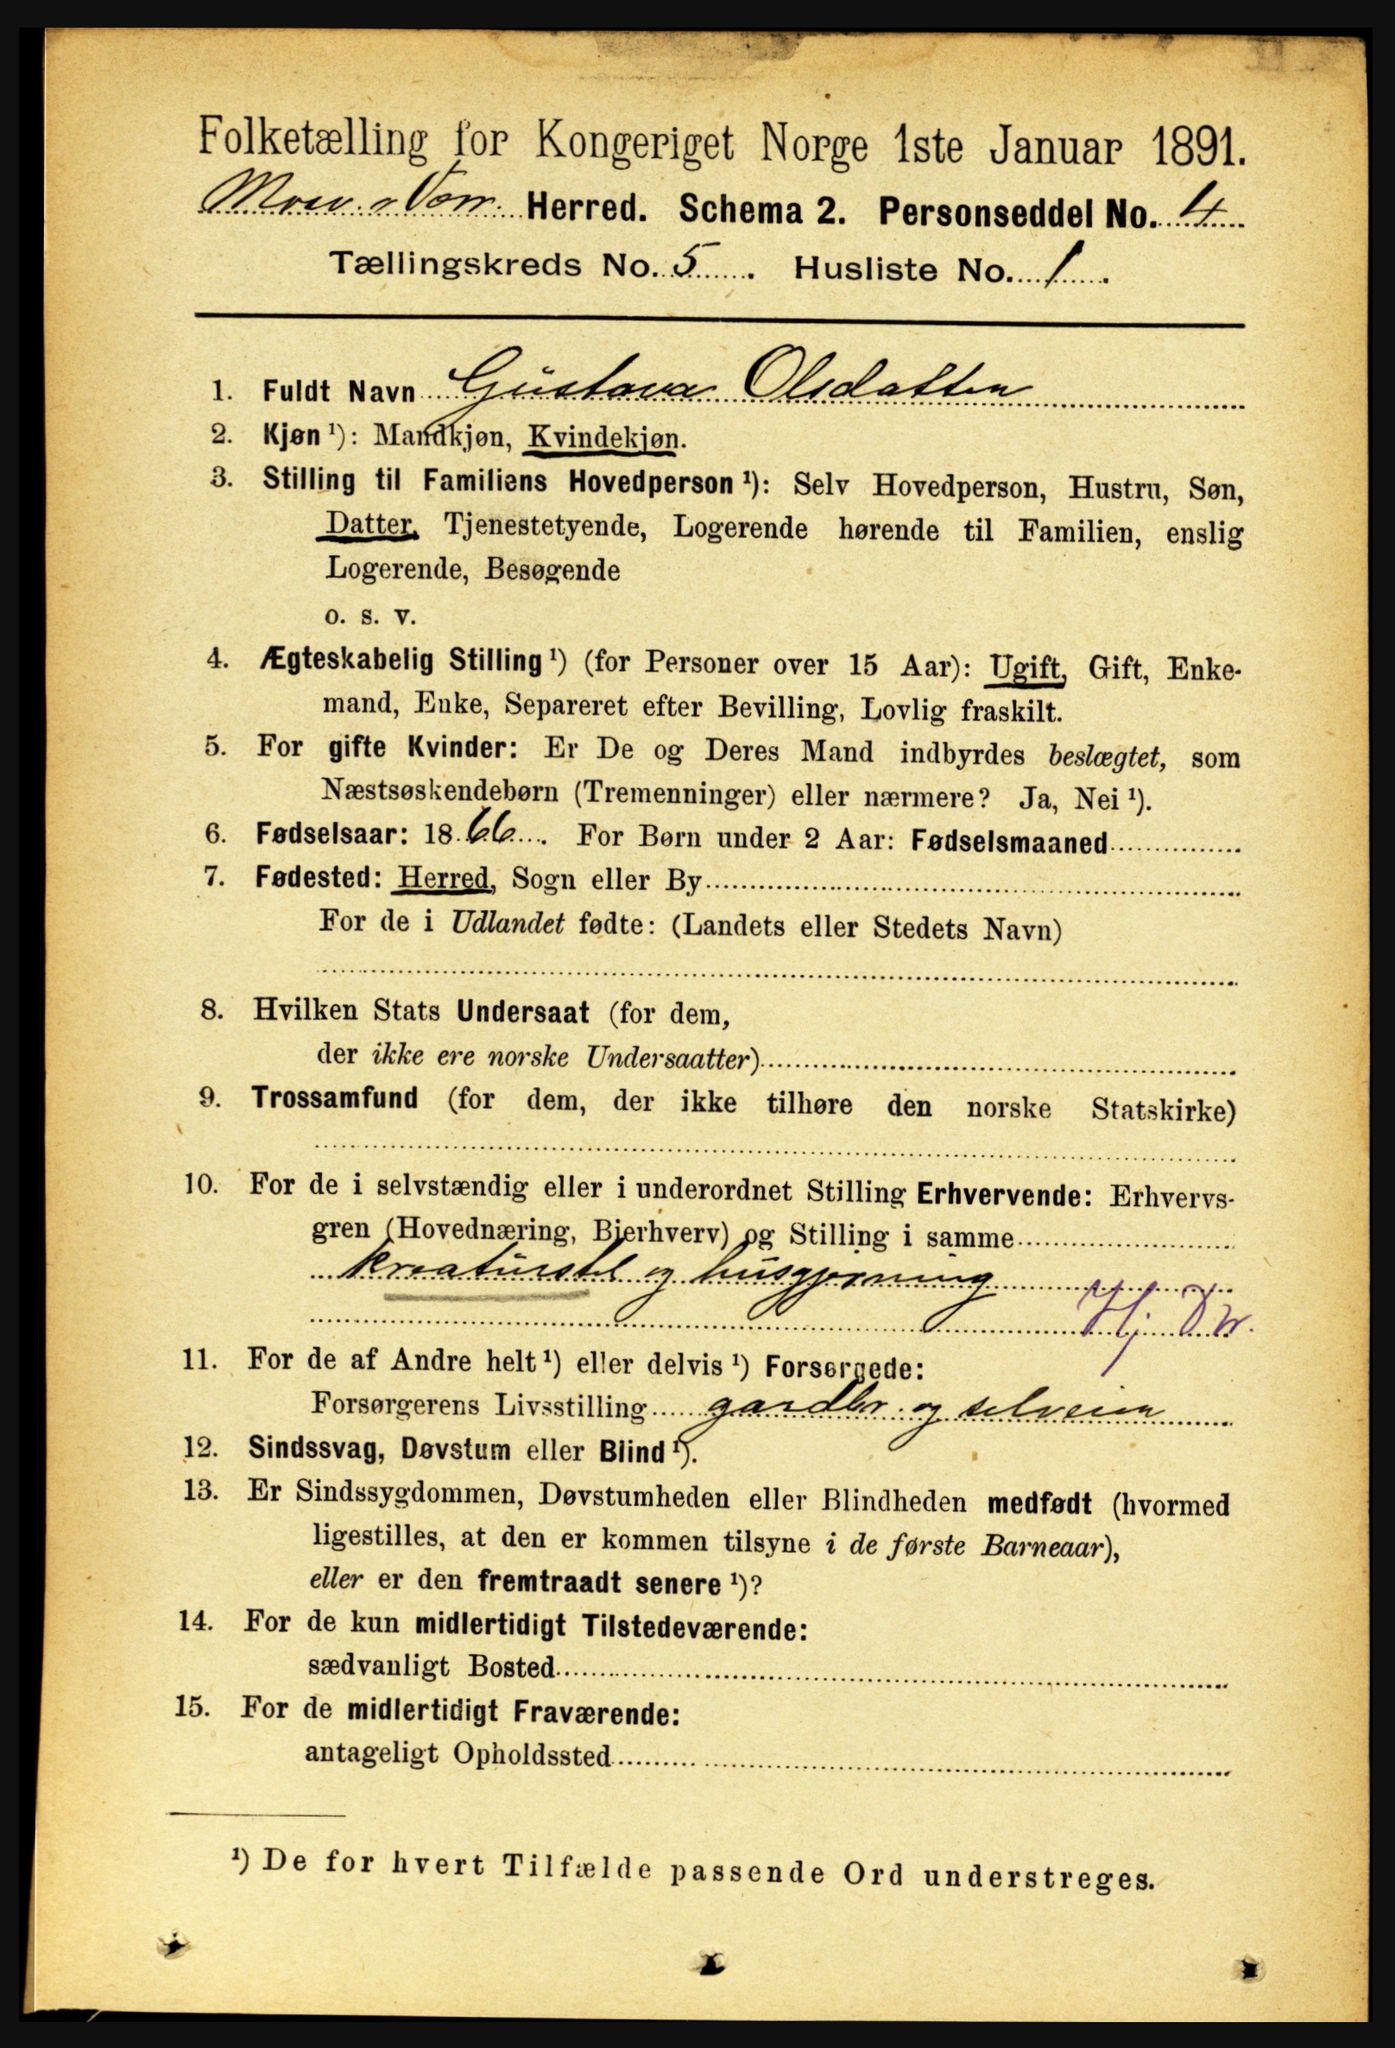 Folketælling for Kongeriget Norge 1ste Januar 1891.
Herred. Schema 2. Personseddel No. 4
Tællingskreds No. 5. Husliste No. 1.
1. Fuldt Navn Gustava Olsdatter
2. Kjøn ¹): Mandkjøn, Kvindekjøn.
3. Stilling til Familiens Hovedperson ¹): Selv Hovedperson, Hustru, Søn,
Datter, Tjenestetyende, Logerende hørende til Familien, enslig
Logerende, Besøgende
o. s. v.
4. Ægteskabelig Stilling ¹) (for Personer over 15 Aar): Ugift, Gift, Enke-
mand, Enke, Separeret efter Bevilling, Lovlig fraskilt.
5. For gifte Kvinder: Er De og Deres Mand indbyrdes beslægtet, som
Næstsøskendebørn (Tremenninger) eller nærmere? Ja, Nei ¹).
6. Fødselsaar: 1866. For Børn under 2 Aar: Fødselsmaaned
7. Fødested: Herred, Sogn eller By
For de i Udlandet fødte: (Landets eller Stedets Navn)
8. Hvilken Stats Undersaat (for dem,
der ikke ere norske Undersaatter)
9. Trossamfund (for dem, der ikke tilhøre den norske Statskirke)
10. For de i selvstændig eller i underordnet Stilling Erhvervende: Erhvervs-
gren (Hovednæring, Bierhverv) og Stilling i samme
kreaturstel og husgjerning
Hj. Dtr.
11. For de af Andre helt ¹) eller delvis ¹) Forsørgede:
Forsørgerens Livsstilling gardbr. og selveier
12. Sindssvag, Døvstum eller Blind ¹).
13. Er Sindssygdommen, Døvstumheden eller Blindheden medfødt (hvormed
ligestilles, at den er kommen tilsyne i de første Barneaar),
eller er den fremtraadt senere ¹)?
14. For de kun midlertidigt Tilstedeværende:
sædvanligt Bosted
15. For de midlertidigt Fraværende:
antageligt Opholdssted
¹) De for hvert Tilfælde passende Ord understreges.